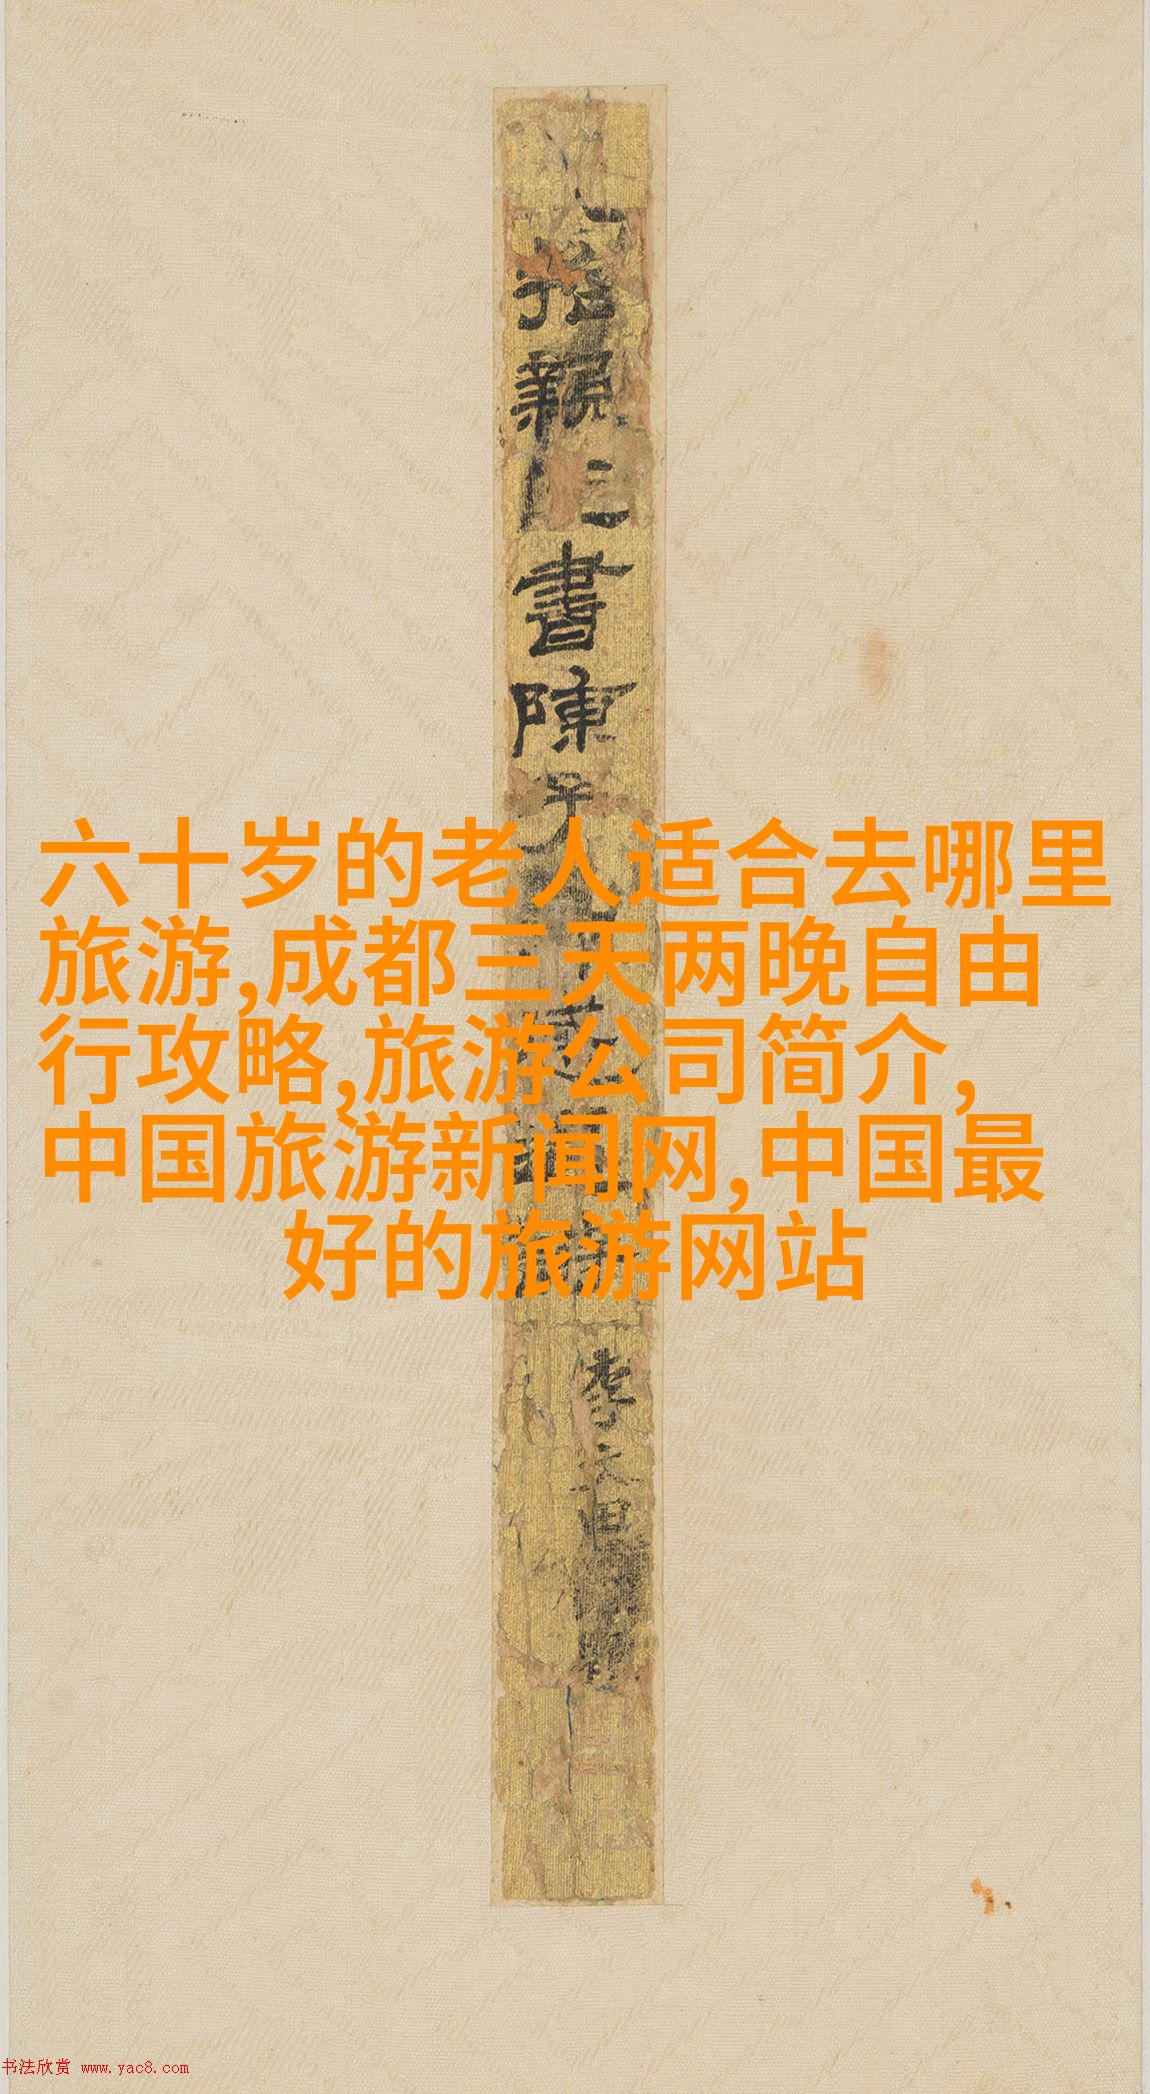 六十岁的老人适合去哪里
旅游,成都三天两晚自由
行攻略,旅游公司简介,
中国旅游新闻网,中国最
好的旅游网站
書陳子
李文田
书法欣赏 www.yac8.com